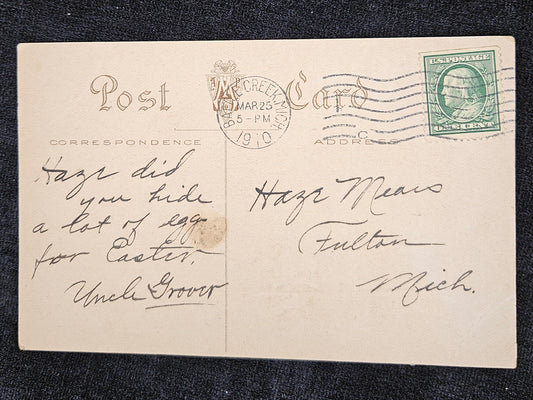 Post Card
BATTLE CREEK, MICH.
MAR 25
5-PM
1910
C
U.S. POSTAGE
ONE CENT
CORRESPONDENCE
ADDRESS
Haze did
you hide
a lot of egg
for Easter.
Uncle Grover
Haze Mears
Fulton
Mich.